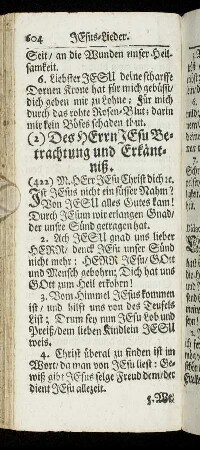 604 JEsus-Lieder.
Seit/ an die Wunden unser Heil-
samkeit.
6. Liebster JESU deine scharffe
Dornen Krone hat für mich gebüsst/
dich geben mir zu Lohne; Für mich
durch das rohte Rosen-Blut; darin
mir kein Böses schaden thut.
(2) Des HErrn JEsu Be-
trachtung und Erkänt-
niß.
(422) M. HErr JEsu Christ dich ꝛc.
Ist JEsus nicht ein süsser Nahm?
Von JESU alles Gutes kam!
Durch JEsum wir erlangen Gnad/
der unsre Sünd getragen hat.
2. Ach JESU gnad uns lieber
HERR/ denck JEsu unser Sünd
nicht mehr; HERR JEsu/ GOtt
und Mensch gebohrn; Dich hat uns
GOtt zum Heil erkohrn!
3. Vom Himmel JEsus kommen
ist/ und hilft uns von des Teufels
List; Drum sey nun JEsu Lob und
Preiß/ dem lieben Kindlein JESU
weis.
4. Christ überal zu finden ist im
Wort/ da man von JEsu liest; Ge-
wiß gibt JEsus selge Freud dem/ der
dient JEsu allezeit.
5. We